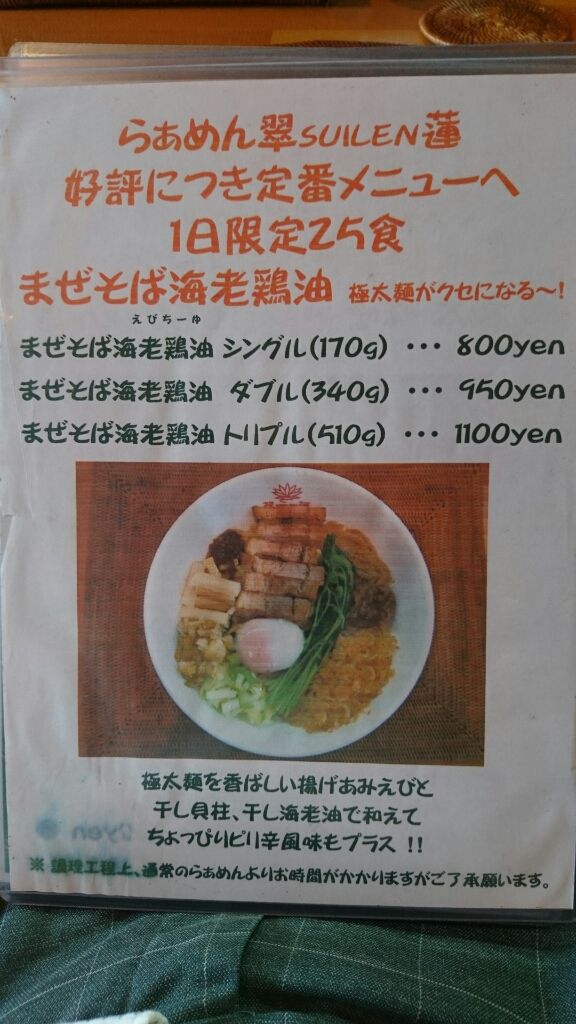 らぁめん翠SUILEN蓮
好評につき定番メニューへ
1日限定25食
まぜそば海老鶏油 極太麺がクセになる〜!
えびちーゆ
まぜそば海老鶏油 シングル(170g) ・・・ 800yen
まぜそば海老鶏油 ダブル(340g) ・・・ 950yen
まぜそば海老鶏油 トリプル(510g) ・・・ 1100yen
極太麺を香ばしい揚げあみえびと
干し貝柱、干し海老油で和えて
ちょっぴりピリ辛風味もプラス !!
※ 調理工程上、通常のらぁめんよりお時間がかかりますがご了承願います。